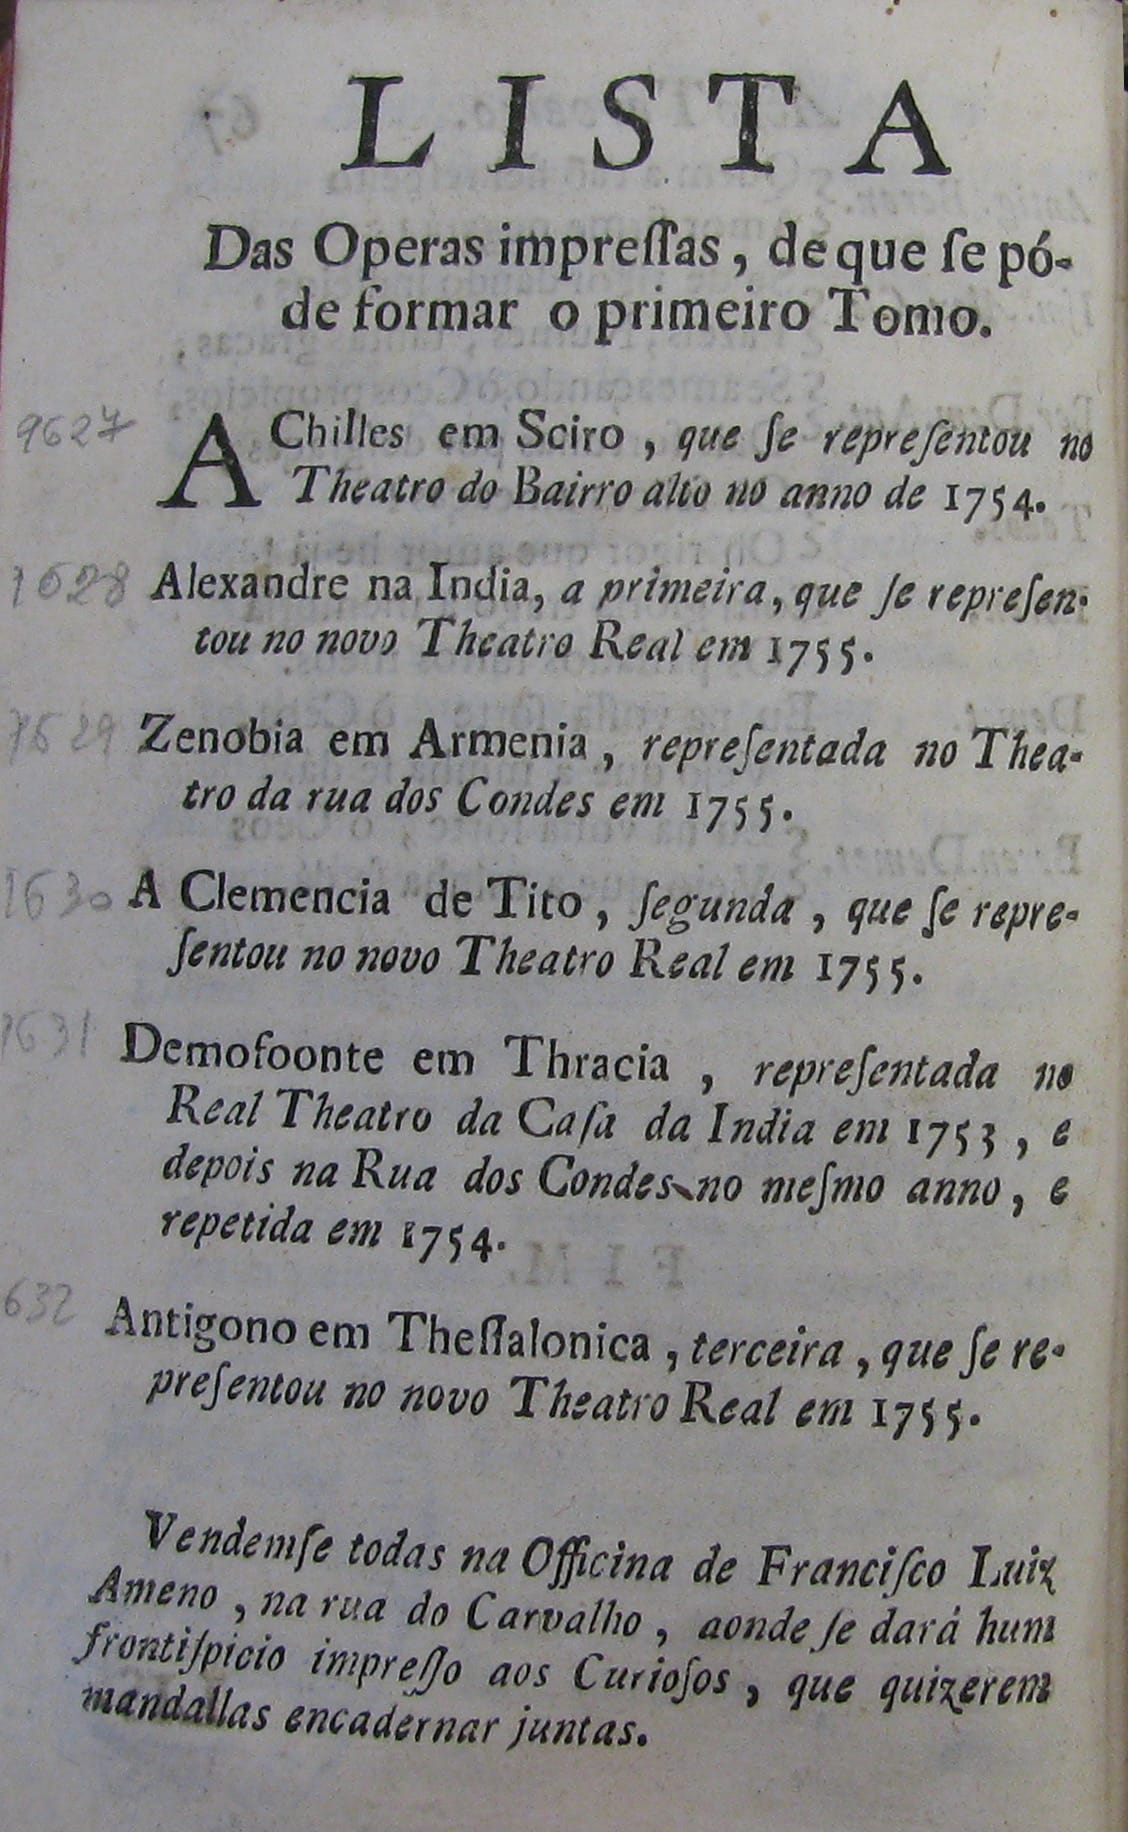 LISTA
Das Operas impreſſas, de que ſe pó-
de formar o primeiro Tomo.
9627
AChilles em Sciro, que ſe repreſentou no
Theatro do Bairro alto no anno de 1754.
1628
Alexandre na India, a primeira, que ſe repreſen-
tou no novo Theatro Real em 1755.
1629
Zenobia em Armenia, repreſentada no Thea-
tro da rua dos Condes em 1755.
1630
A Clemencia de Tito, ſegunda, que ſe repre-
ſentou no novo Theatro Real em 1755.
1631
Demofoonte em Thracia, repreſentada no
Real Theatro da Caſa da India em 1753, e
depois na Rua dos Condes no meſmo anno, e
repetida em 1754.
632
Antigono em Theſſalonica, terceira, que ſe re-
preſentou no novo Theatro Real em 1755.
Vendemſe todas na Officina de Franciſco Luiz
Ameno, na rua do Carvalho, aonde ſe dará hum
frontiſpicio impreſſo aos Curioſos, que quizerem
mandallas encadernar juntas.